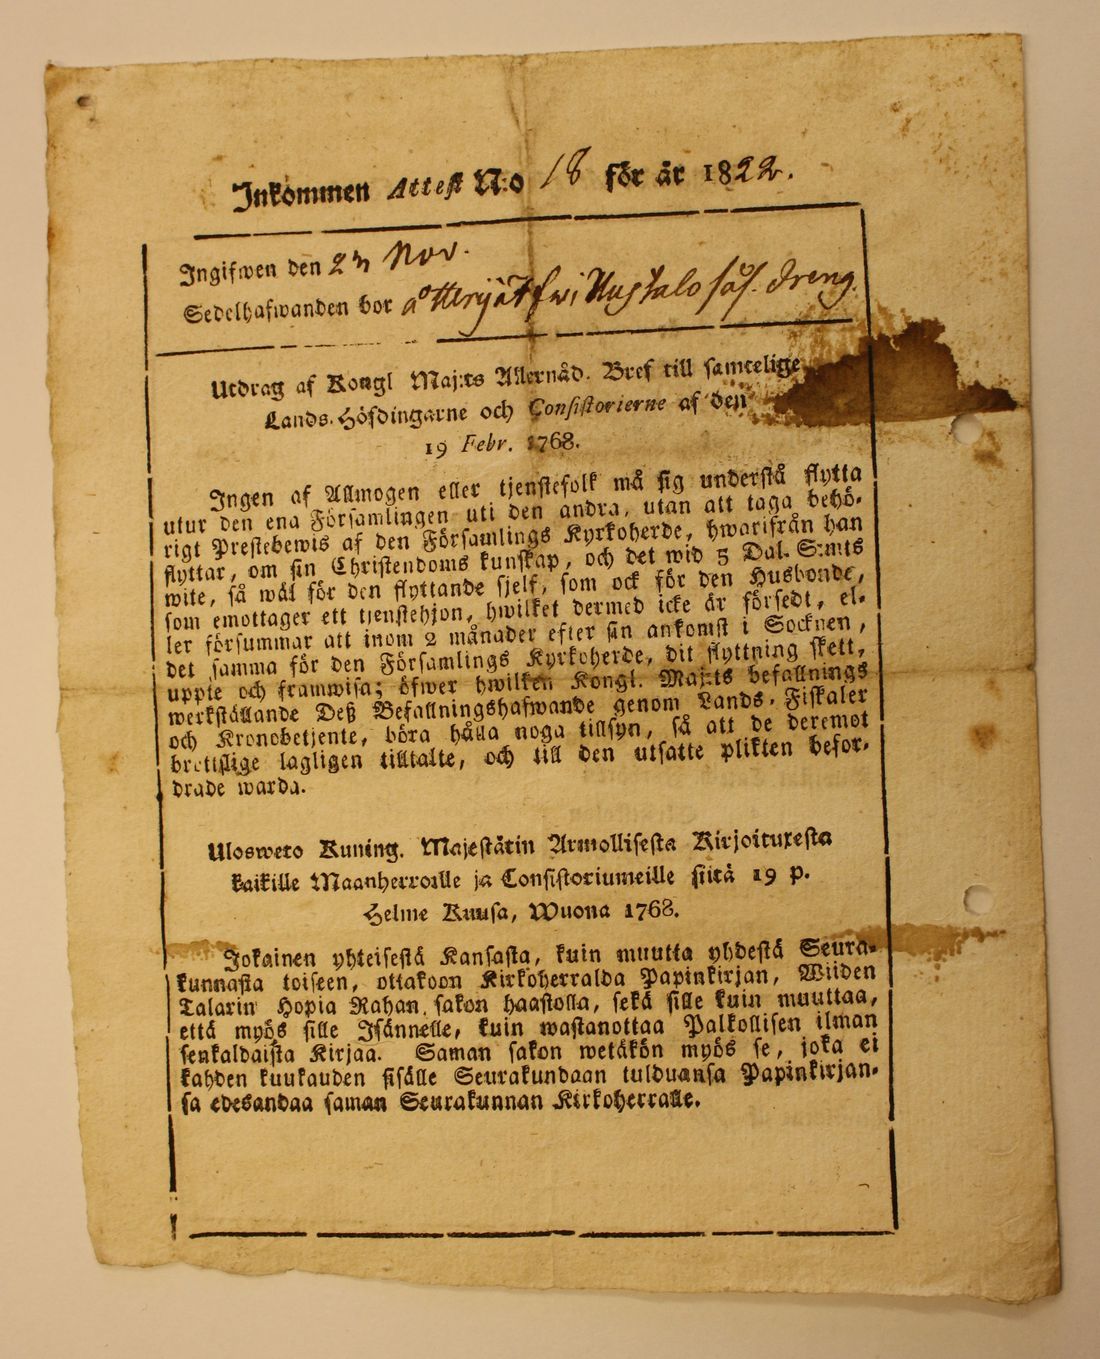 Inkommen Attest N:o 18 för år 1822.
Ingifwen den 2 Nov.
Sedelhafwanden bor å dreng.
Utdrag af Kongl Maj:ts Allernåd. Bref till samtelige
Lands-Höfdingarne och Consistorierne af den
19 Febr. 1768.
Ingen af Allmogen eller tjenstefolk må sig understå flytta
utur den ena Församlingen uti den andra, utan att taga behö-
rigt Prestebewis af den Församlings Kyrkoherde, hwarifrån han
flyttar, om sin Christendoms kunskap, och det wid 5 Dal. S:mts
wite, så wäl för den flyttande sjelf, som ock för den Husbonde,
som emottager ett tjenstehjon, hwilket dermed icke är försedt, el-
ler försummar att inom 2 månader efter sin ankomst i Socknen,
det samma för den Församlings Kyrkoherde, dit flyttning skett,
uppte och framwisa; öfwer hwilken Kongl. Maj:ts befallnings
werkställande Deß Befallningshafwande genom Lands-Fiskaler
och Kronobetjente, böra hålla noga tillsyn, så att de deremot
brottslige lagligen tilltalte, och till den utsatte plikten befor-
drade warda.
Ulosweto Kuning. Majestätin Armollisesta Kirjoituxesta
kaikille Maanherroille ja Consistoriumeille siitä 19 p.
Helme Kuusa, Wuona 1768.
Jokainen yhteisestä Kansasta, kuin muutta yhdestä Seura-
kunnasta toiseen, ottakoon Kirkoherralda Papinkirjan, Wiiden
Talarin Hopia Rahan sakon haastolla, sekä sille kuin muuttaa,
että myös sille Isännelle, kuin wastanottaa Palkollisen ilman
senkaldaista Kirjaa. Saman sakon wetäkön myös se, joka ei
kahden kuukauden sisälle Seurakundaan tulduansa Papinkirjan-
sa edesandaa saman Seurakunnan Kirkoherralle.